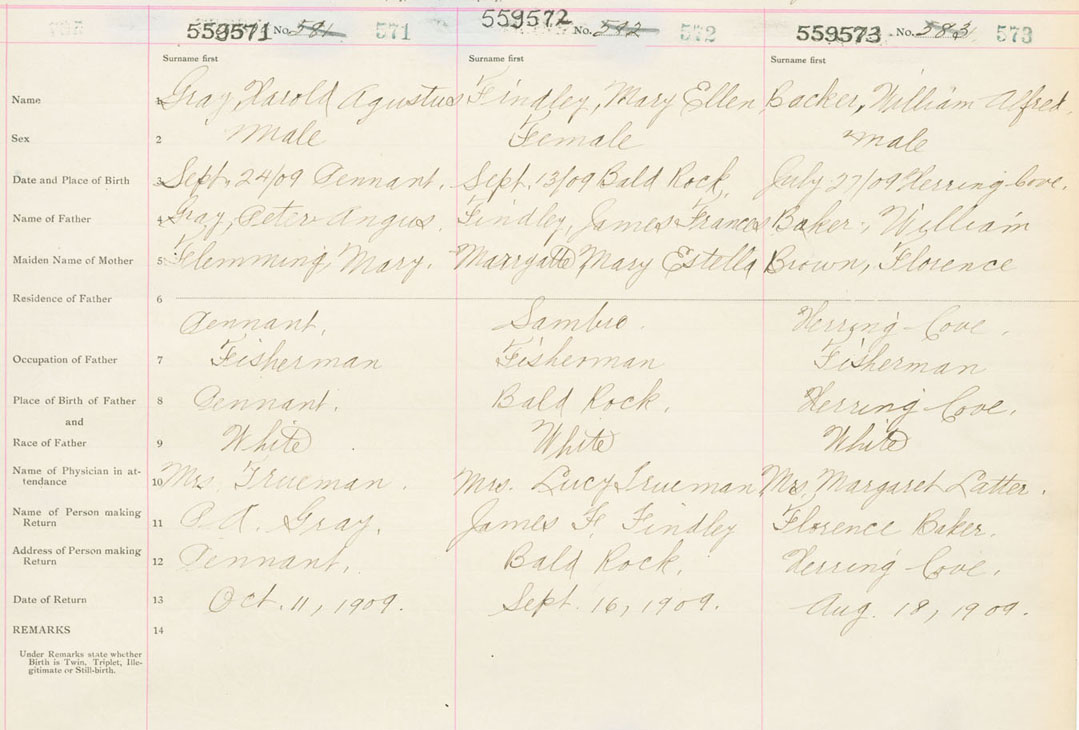 559571 No. 581 571 559572 No. 582 572 559573 No. 583 573
Surname first Surname first Surname first
Name 1 Gray, Harold Agustus Findley, Mary Ellen Backer, William Alfred.
Sex 2 Male Female Male
Date and Place of Birth 3 Sept. 24/09 Pennant. Sept. 13/09 Bald Rock, July 27/09 Herring Cove.
Name of Father 4 Gray, Peter Angus. Findley, James Frances Baker, William
Maiden Name of Mother 5 Flemming Mary. Marryatte, Mary Estella Brown, Florence
Residence of Father 6
Pennant. Sambro. Herring Cove.
Occupation of Father 7 Fisherman Fisherman Fisherman
Place of Birth of Father 8 Pennant. Bald Rock. Herring Cove.
and
Race of Father 9 White White White
Name of Physician in at-
tendance 10 Mrs. Trueman. Mrs. Lucy Trueman Mrs. Margaret Latter.
Name of Person making
Return 11 P.A. Gray. James F. Findley Florence Baker.
Address of Person making
Return 12 Pennant. Bald Rock. Herring Cove.
Date of Return 13 Oct. 11, 1909. Sept. 16, 1909. Aug. 18, 1909.
REMARKS 14
Under Remarks state whether
Birth is Twin, Triplet, Ille-
gitimate or Still-birth.